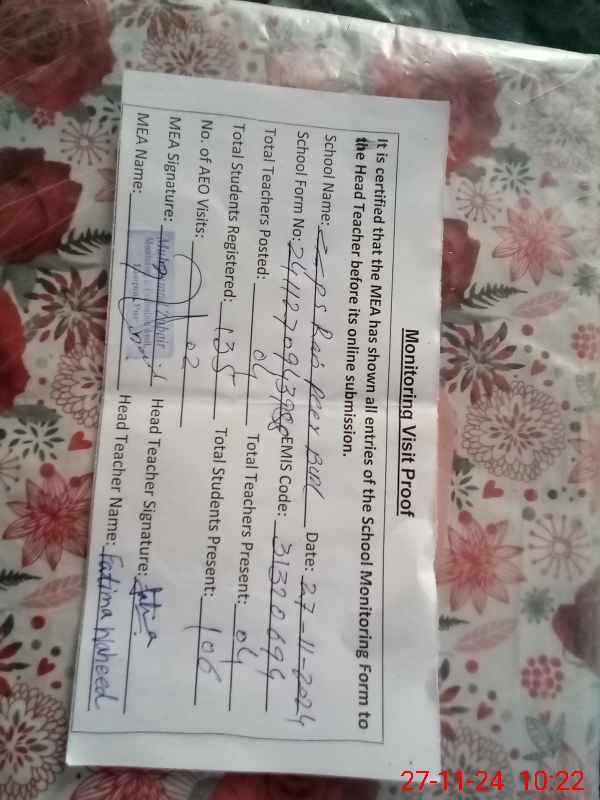 Monitoring Visit Proof
It is certified that the MEA has shown all entries of the School Monitoring Form to
the Head Teacher before its online submission.
School Name: PS Date: 27-11-2024
School Form No: EMIS Code: 31320694
Total Teachers Posted: 04 Total Teachers Present: 04
Total Students Registered: 135 Total Students Present: 106
No. of AEO Visits: 02
MEA Signature: Head Teacher Signature:
MEA Name: Head Teacher Name: Fatima Waheed
27-11-24 10:22